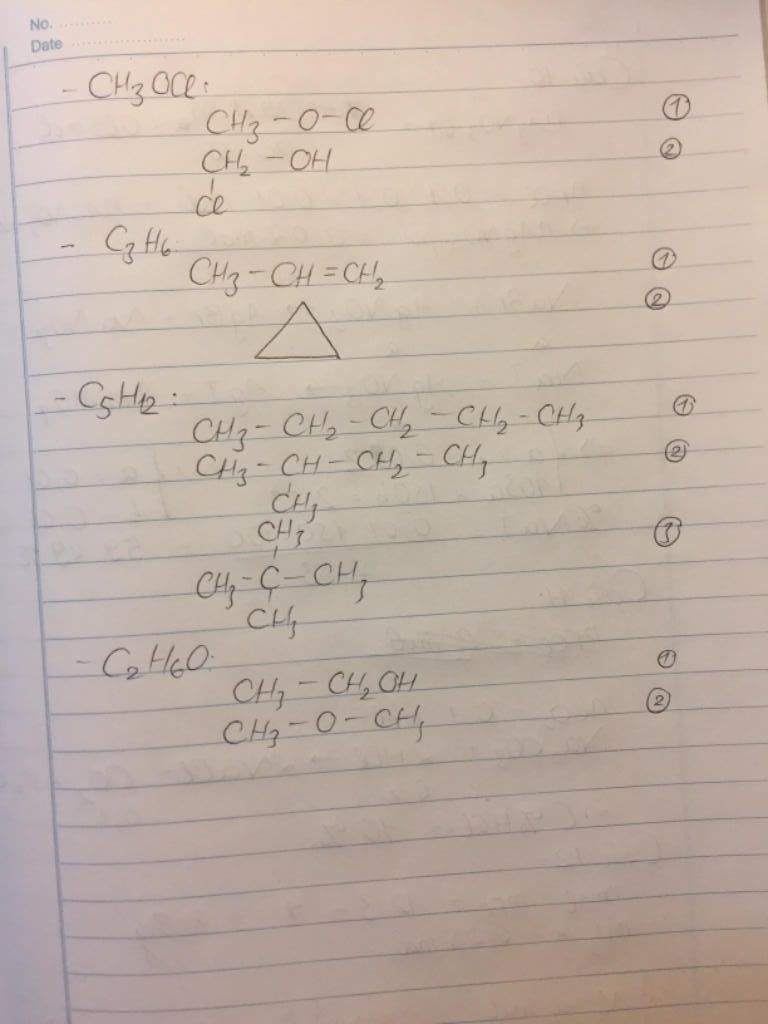 No.
Date
- CH₃OCl:
CH₃ - O - Cl ①
CH₂ - OH ②
Cl
- C₃H₆
CH₃ - CH = CH₂ ①
②
- C₅H₁₂:
CH₃ - CH₂ - CH₂ - CH₂ - CH₃ ①
CH₃ - CH - CH₂ - CH₃ ②
CH₃
CH₃ ③
CH₃ - C - CH₃
CH₃
- C₂H₆O:
CH₃ - CH₂OH ①
CH₃ - O - CH₃ ②